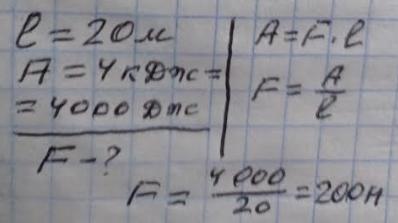 ℓ = 20м
A = 4кДж =
= 4000 Дж
F - ?
A = F · ℓ
F = A/ℓ
F = 4000/20 = 200н